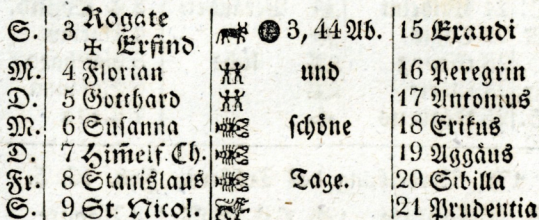 S. 3 Rogate ✠ Erfind 3, 44 Ab. 15 Exaudi
M. 4 Florian und 16 Peregrin
D. 5 Gotthard 17 Antonius
M. 6 Susanna schöne 18 Erikus
D. 7 Him̄elf. Ch. 19 Aggäus
Fr. 8 Stanislaus Tage. 20 Sibilla
S. 9 St. Nicol. 21 Prudentia